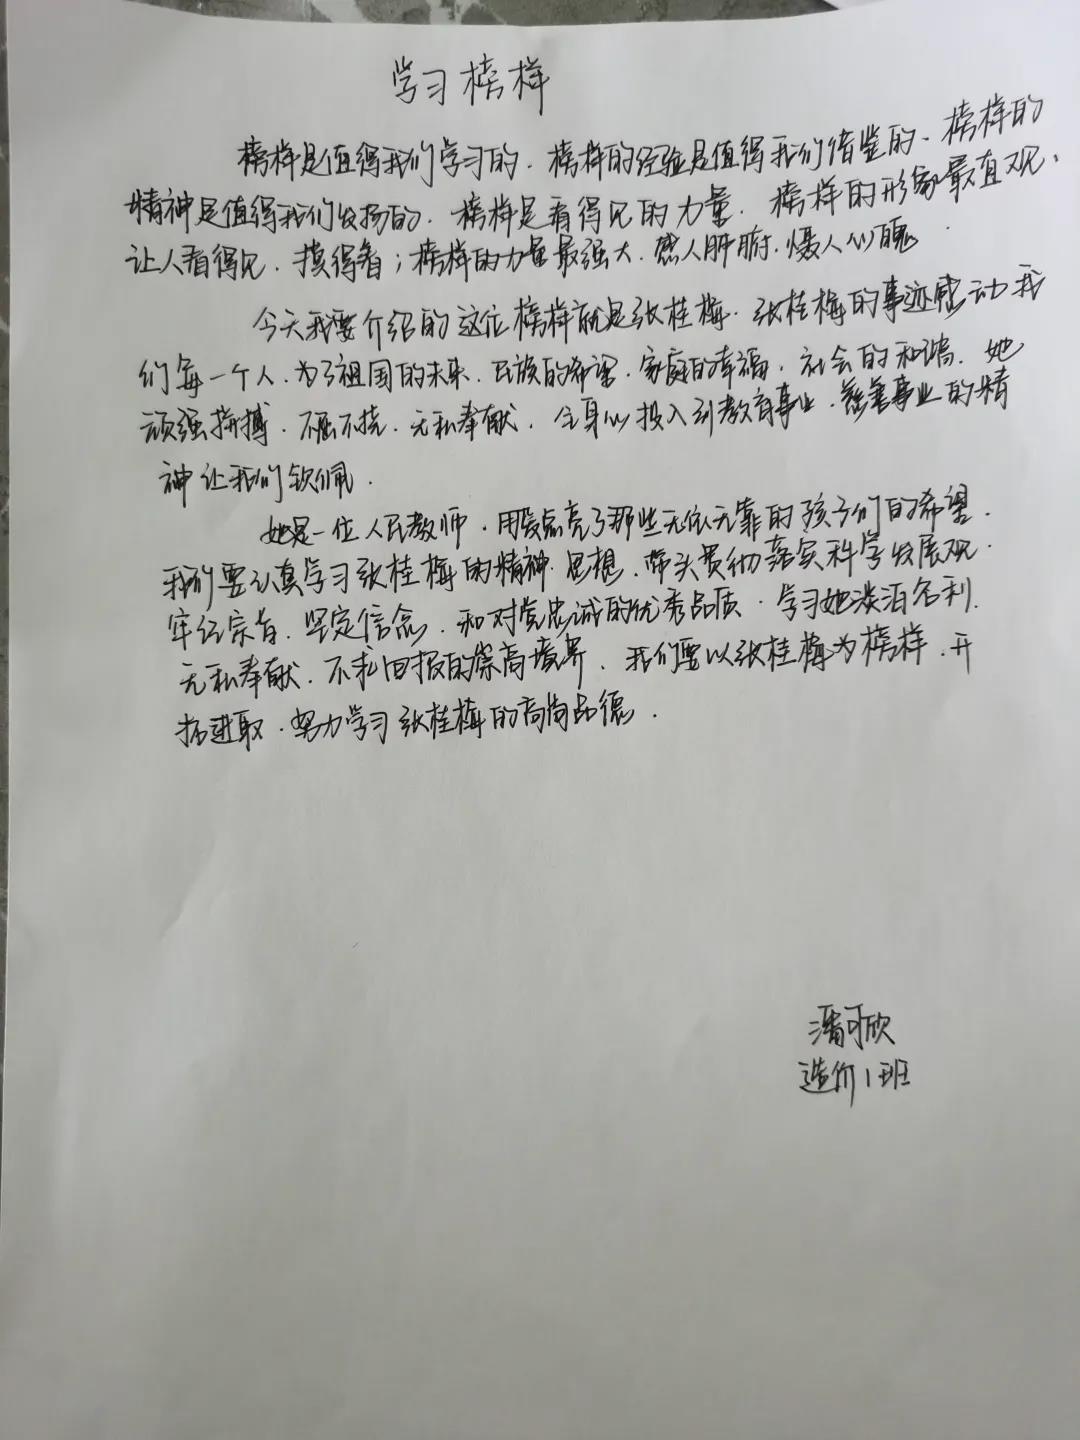 学习榜样
榜样是值得我们学习的.榜样的经验是值得我们借鉴的.榜样的
精神是值得我们发扬的.榜样是看得见的力量.榜样的形象最直观.
让人看得见.摸得着;榜样的力量最强大.感人肺腑.慑人心魄.
今天我要介绍的这位榜样就是张桂梅.张桂梅的事迹感动我
们每一个人.为了祖国的未来.民族的希望.家庭的幸福.社会的和谐.她
顽强拼搏.不屈不挠.无私奉献.全身心投入到教育事业.慈善事业的精
神让我们钦佩.
她是一位人民教师.用爱点亮了那些无依无靠的孩子们的希望.
我们要认真学习张桂梅的精神.思想.带头贯彻落实科学发展观.
牢记宗旨.坚定信念.和对党忠诚的优秀品质.学习她淡泊名利.
无私奉献.不求回报的崇高境界.我们要以张桂梅为榜样.开
拓进取.努力学习张桂梅的高尚品德.
潘可欣
造价1班